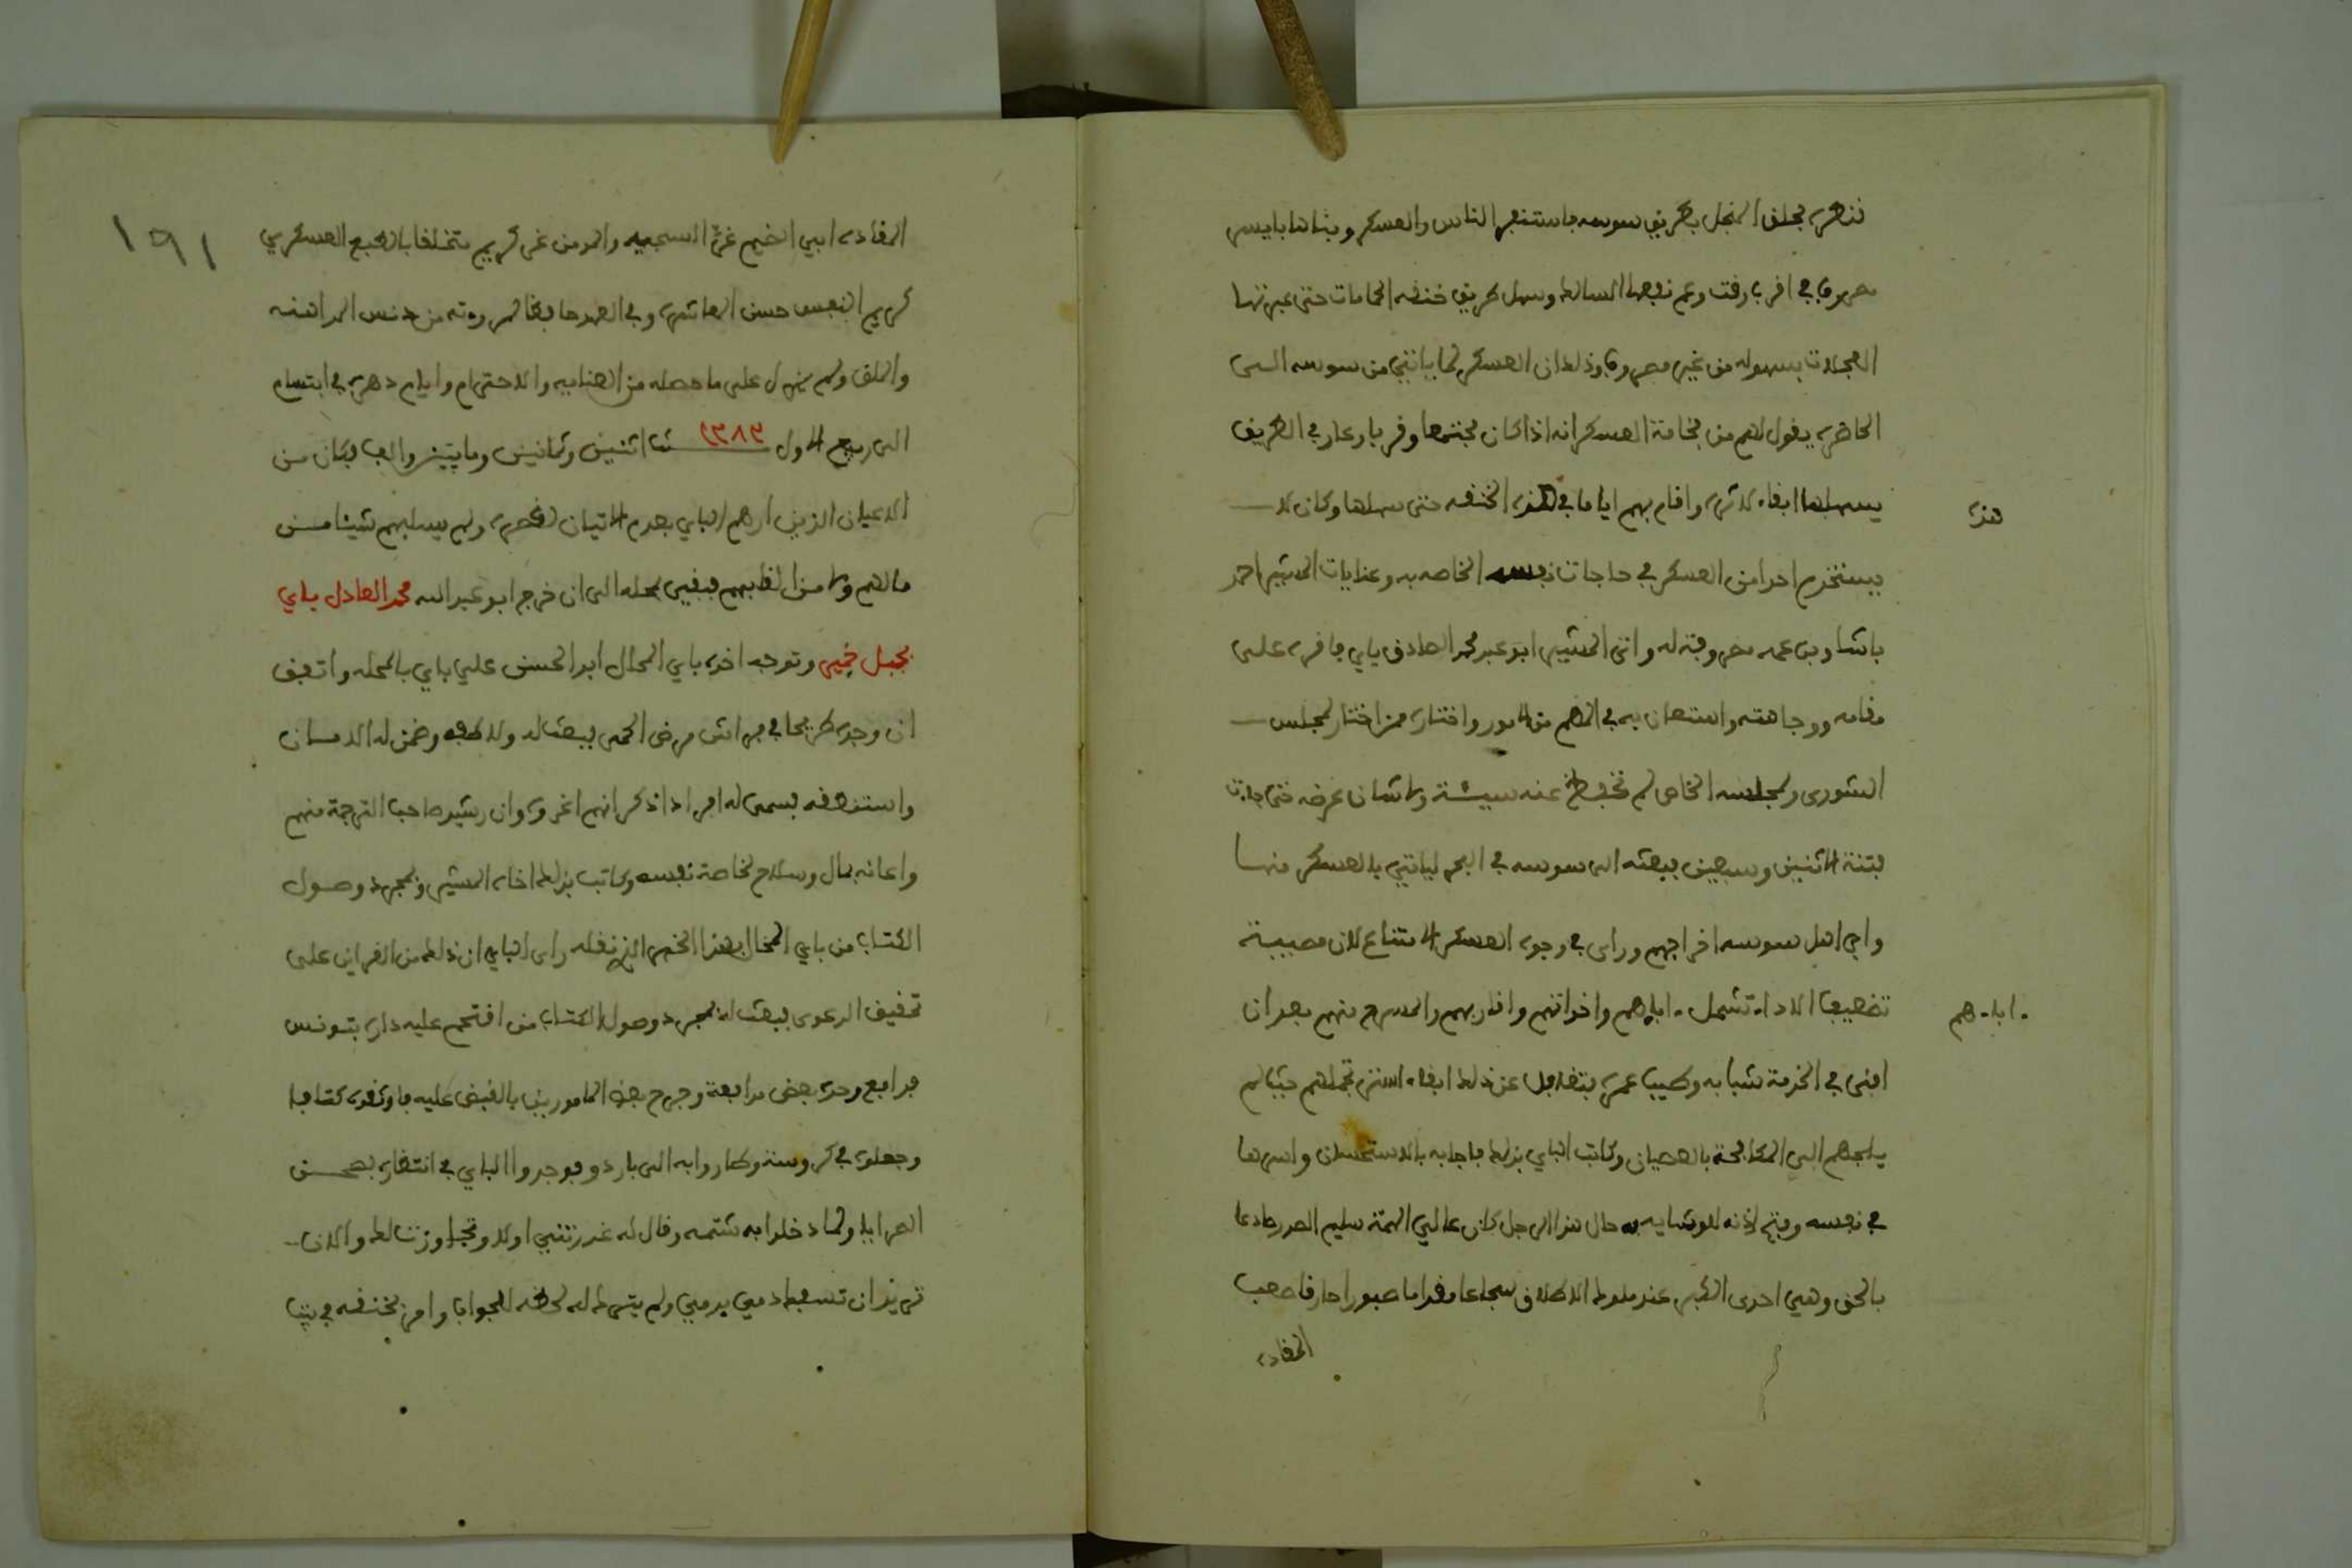 نظره لجلف المنجل بطريق سوسه باستنفر الناس والعسكر وبناها بايسر
مصروف في اقرب وقت وعم نفعها السالك وسهل طريق خنقه الحمامات حتى عبرتها
العجلات بسهوله من غير مصروف وذلك ان العسكر لما ياتي من سوسه الى
الحاضره يقول لهم من فخامة العسكر انه اذا كان مجتمعا وقربا وعار في الطريق
يسهلها ابقاء لاثره واقام بهم اياما في هذه الخنقه حتى سهلها وكان لا
هذه
يستخدم احدا من العسكر في حاجات نفسه الخاصه به وعنايات المشير احمد
باشا وبن عمه مصروفة له واتى المشير ابو عبد محمد الصادق باي فاقره على
مقامه ووجاهته واستعان به في المهم من الامور واختاره ممن اختار لمجلس
الشورى ولمجلسه الخاص لم تحفظ عنه سيئة ولا شان عرضه حتى جاءت
فتنة اثنين وسبعين فبعثه الى سوسه في البحر لياتي بالعسكر منها
وابى اهل سوسه اخراجهم وراى في وجوه العسكر الامتناع لان مصيبة
تضعيف الاداء تشمل اباءهم واخوانهم واقاربهم والمسرح منهم بعد ان
اباءهم
افنى في الخدمة شبابه وطيب عمره فتغافل عن ذلك ابقاء لستر تجملهم حيث لم
يلجهم الى المكافحة بالعصيان وكاتب الباي بذلك فاجابه بالاستحسان واسرها
في نفسه وفتح اذنه للوشايه به حال هذا الرجل كان عالي الهمة سليم الصدر صادعا
بالحق وهي احدى الكبر عند ملوك الاطلاق شجاعا مقداما صبورا حازقا صعب
المقاده
١٩١
المقاده ابي الضيم غر السجيه والمومن غر كريم متخلقا بالطبع العسكري
كريم النفس حسن المعاشره وفي العهد حافظا لمروءته من دنس المداهنه
والملق ولم يزل على ما حصله من العنايه والاحترام وايام دهره في ابتسام
الى ربيع الاول ١٢٨٣ سنة اثنين وثمانين ومايتين والف وكان من
الاعيان الذين امرهم الباي بعدم الاتيان لقصره ولم يسلبهم شيئا من
مالهم ولا من القابهم فبقي بحاله الى ان خرج ابو عبد الله محمد العادل باي
بجبل خمير وتوجه اخوه باي المحال ابو الحسن علي باي بالمحله واتفق
ان وجده طريحا في فراش مرض الحمى فبعث له ولاطفه وضمن له الامان
واستنطقه فسمى له افرادا ذكر انهم اغروه وان رشيد صاحب الترجمة منهم
واعانه بمال وسلاح لخاصة نفسه وكاتب بذلك اخاه المشير وبمجرد وصول
الكتاب من باي المحال بهذا الخبر الذي نقله راى الباي ان ذلك من القراين على
تحقيق الدعوى فبعث له بمجرد وصول الكتاب من اقتحم عليه داره بتونس
فدافع وحده بعض مدافعة وجرح بعض المامورين بالقبض عليه فاوثقوه كتافا
وجعلوه في كروسة وطاروا به الى باردو فوجدوا الباي في انتظاره بصحن
السرايا ولما دخلوا به شتمه وقال له غدرتني اولا وتجاوزت لك والان
تريد ان تسفك دمي بدمي ولم يترك له لحظه للجواب وامر بخنقه في بيت